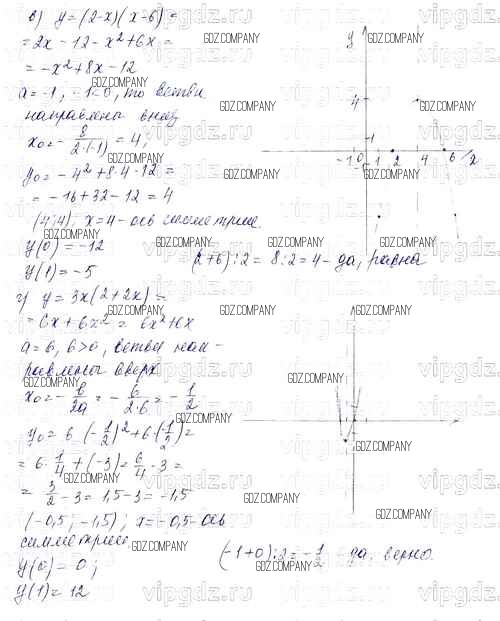 в) y = (2-x)(x-6) =
= 2x - 12 - x² + 6x =
= -x² + 8x - 12
a = -1, -1<0, то ветви
направлены вниз
x₀ = - 8/2·(-1) = 4;
y₀ = -4² + 8·4 - 12 =
= -16 + 32 - 12 = 4
(4;4); x=4 - ось симметрии.
y(0) = -12
y(1) = -5
(2+6):2 = 8:2 = 4 - да, равна
г) y = 3x(2+2x) =
= 6x + 6x² = 6x² + 6x
a = 6, 6>0, ветви нап-
равлены вверх
x₀ = - b/2a = - 6/2·6 = - 1/2
y₀ = 6·(-1/2)² + 6·(-1/2) =
= 6·1/4 + (-3) = 6/4 - 3 =
= 3/2 - 3 = 1,5 - 3 = -1,5
(-0,5; -1,5); x = -0,5 - ось
симметрии
y(0) = 0;
y(1) = 12
(-1+0):2 = - 1/2 да, верно.
y
4
1
-1 0 1 2 4 6 x
GDZ.COMPANY
vipgdz.ru